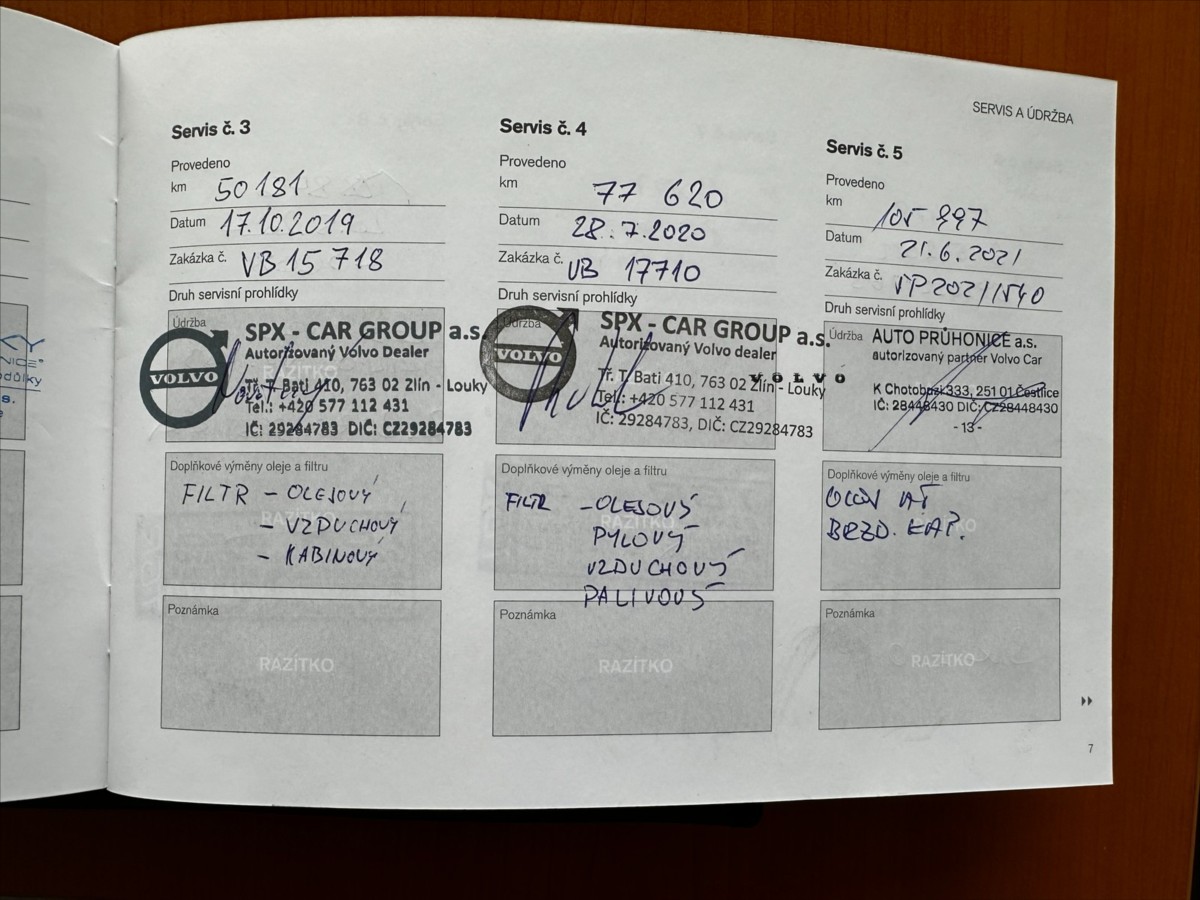 SERVIS A ÚDRŽBA
Servis č. 3
Provedeno
km 50181
Datum 17.10.2019
Zakázka č. VB 15 718
Druh servisní prohlídky
Údržba
VOLVO
SPX - CAR GROUP a.s.
Autorizovaný Volvo Dealer
Tř. T. Bati 410, 763 02 Zlín - Louky
Tel.: +420 577 112 431
IČ: 29284783 DIČ: CZ29284783
Doplňkové výměny oleje a filtru
FILTR – OLEJOVÝ
– VZDUCHOVÝ
– KABINOVÝ
RAZÍTKO
Poznámka
RAZÍTKO
Servis č. 4
Provedeno
km 77 620
Datum 28.7.2020
Zakázka č. VB 17710
Druh servisní prohlídky
Údržba
VOLVO
SPX - CAR GROUP a.s.
Autorizovaný Volvo dealer
Tř. T. Bati 410, 763 02 Zlín - Louky
Tel.: +420 577 112 431
IČ: 29284783, DIČ: CZ29284783
Doplňkové výměny oleje a filtru
FILTR – OLEJOVÝ
RAZÍTKO
PYLOVÝ
VZDUCHOVÝ
PALIVOVÝ
Poznámka
RAZÍTKO
Servis č. 5
Provedeno
km
Datum 21.6.2021
Zakázka č.
Druh servisní prohlídky
Údržba
VOLVO
AUTO PRŮHONICE a.s.
autorizovaný partner Volvo Car
K Chotobuzi 333, 251 01 Čestlice
IČ: 28448430 DIČ: CZ28448430
- 13 -
Doplňkové výměny oleje a filtru
BRZD. KAP.
Poznámka
RAZÍTKO
7